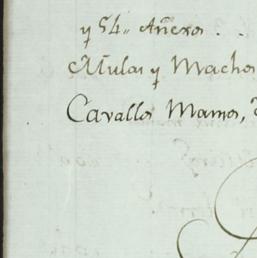 y 54,, Añexos . .
Mulas y Machos
Cavallos Mansos,